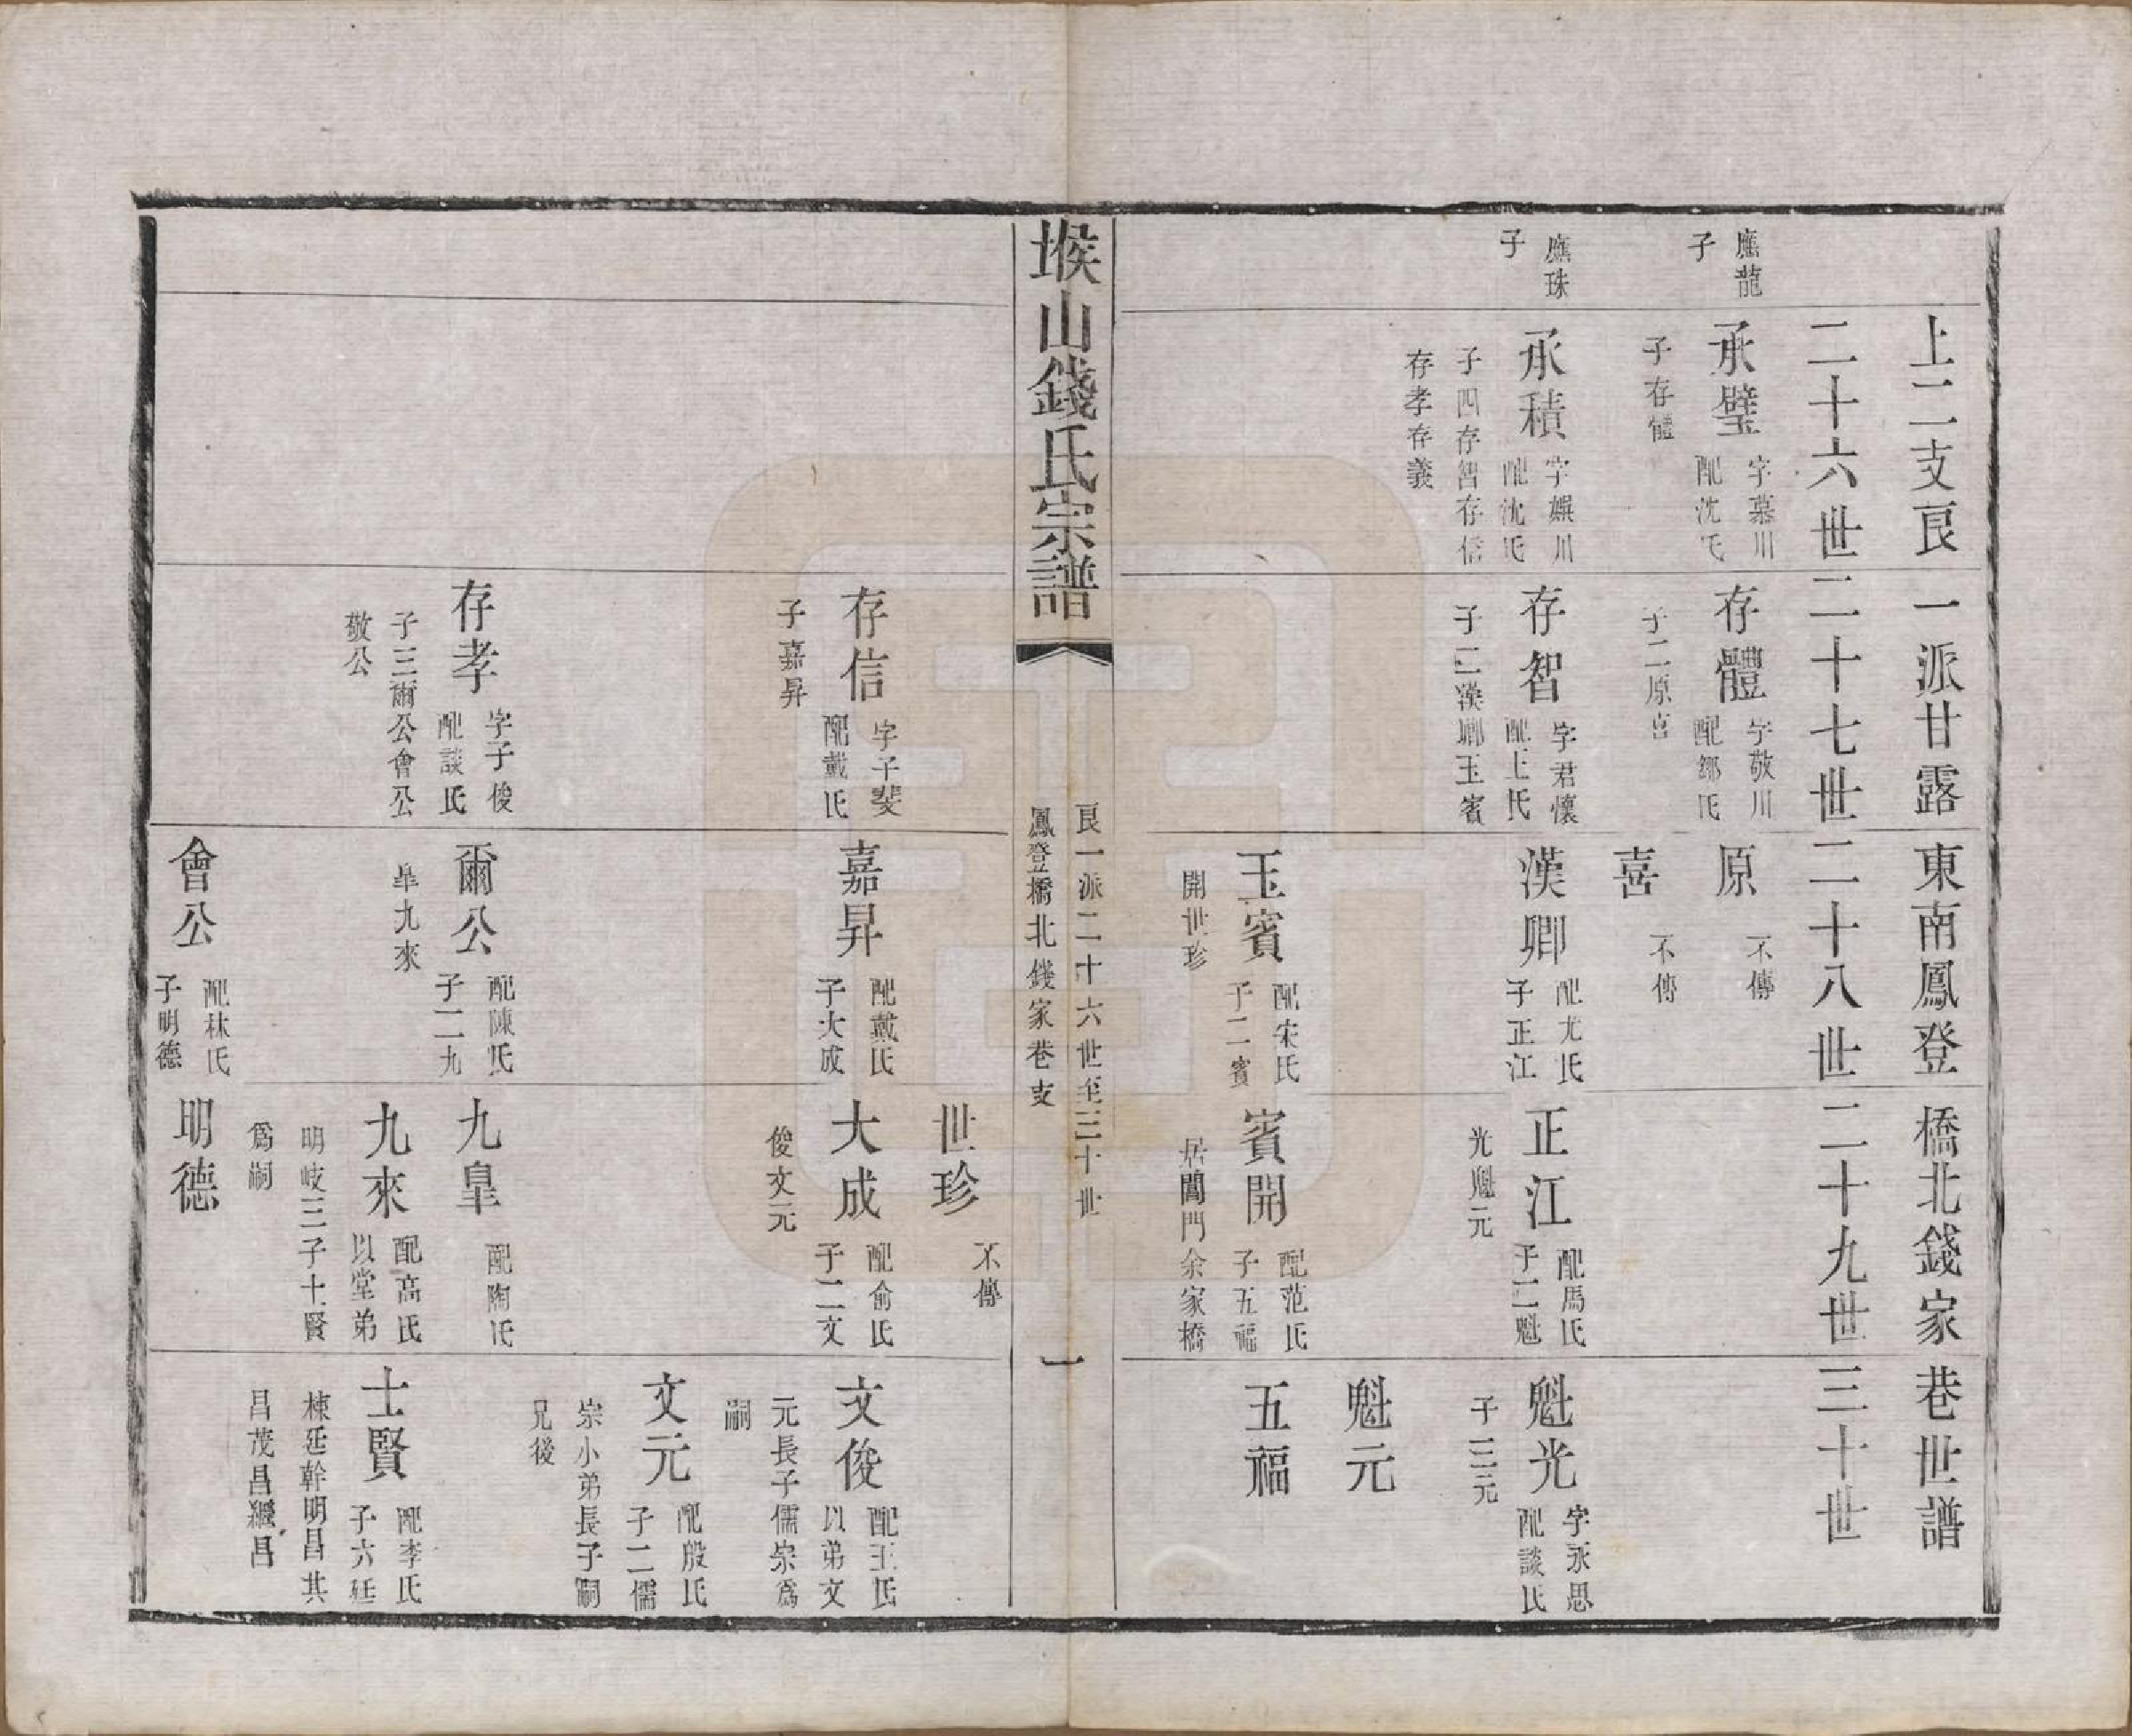 上二支艮一派甘露東南鳳登橋北錢家巷世譜
二十六世
二十七世
二十八世
二十九世
三十世
應龍
子
承璧
字慕川
配沈氏
子存體
存體
字敬川
配鄒氏
子二原喜
原
不傳
喜
不傳
應珠
子
承積
字娛川
配沈氏
子四存智存信
存孝存義
存智
字君懷
配王氏
子二漢卿玉賓
漢卿
配尤氏
子正江
正江
配馬氏
子二魁
光魁元
魁光
字永思
配談氏
子三元
魁元
玉賓
配宋氏
子二賓
開世珍
賓開
配范氏
子五福
居閶門余家橋
五福
堠山錢氏宗譜
艮一派二十六世至三十世
鳳登橋北錢家巷支
一
世珍
不傳
存信
字子斐
配戴氏
子嘉昇
嘉昇
配戴氏
子大成
大成
配俞氏
子二文
俊文元
文俊
配王氏
以弟文
元長子儒宗爲
嗣
文元
配殷氏
子二儒
宗小弟長子嗣
兄後
存孝
字子俊
配談氏
子三爾公會公
敬公
爾公
配陳氏
子二九
皐九來
九皐
配陶氏
九來
配高氏
以堂弟
明岐三子士賢
爲嗣
士賢
配李氏
子六廷
棟廷幹明昌其
昌茂昌繼昌
會公
配林氏
子明德
明德